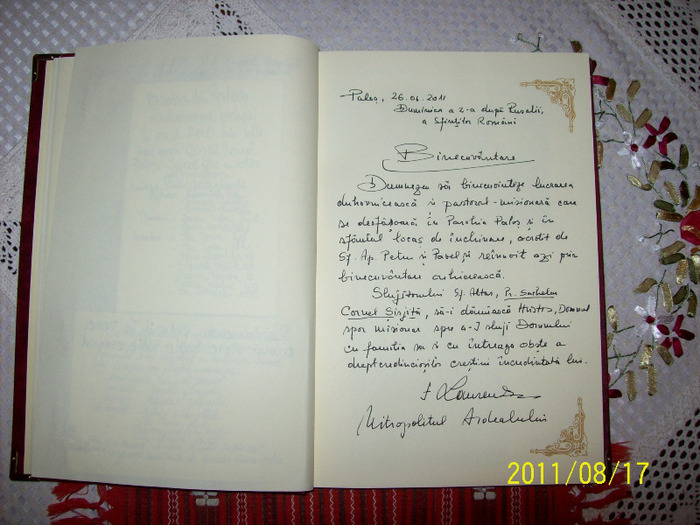 Paloș, 26.06.2011
Duminica a 2-a după Rusalii,
a Sfinților Români
Binecuvântare
Dumnezeu să binecuvinteze lucrarea
duhovnicească și pastoral-misionară care
se desfășoară în Parohia Paloș și în
sfântul locaș de închinare, ocrotit de
Sf. Ap. Petru și Pavel și reînnoit azi prin
binecuvântare arhierească.
Slujitorului Sf. Altar, Pr. Sachelar
Cornel Sișită, să-i dăruiască Hristos, Domnul
spor misionar spre a-I sluji Domnului
cu familia sa și cu întreaga obște a
dreptcredincioșilor creștini încredințată lui.
† Laurențiu
Mitropolitul Ardealului
2011/08/17